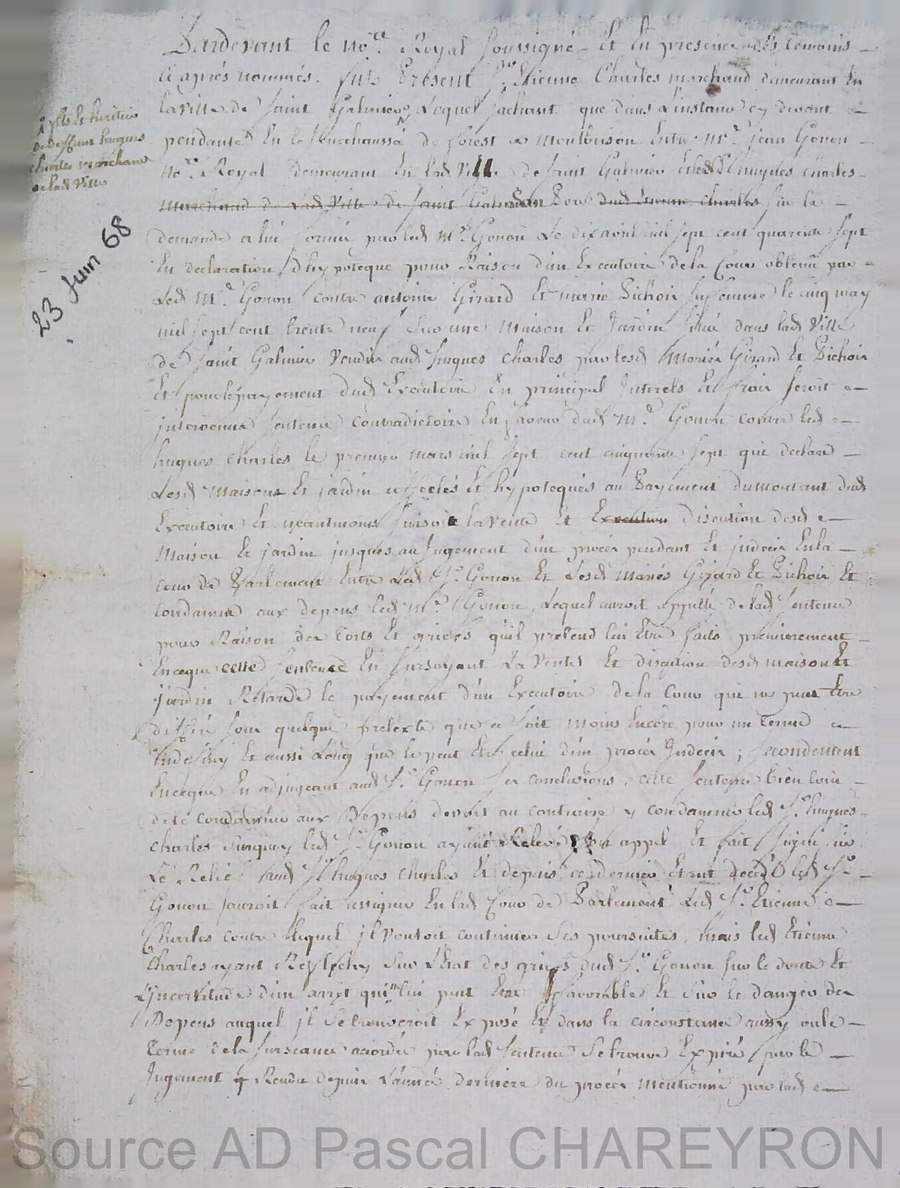 Pardevant le no.re Royal soussigné et en presence des temoins
cy aprés nommés. fut Present S.r Etienne Charles marchand demeurant en
la ville de Saint Galmier, Lequel sachant que dans l'instance cy devant
pendante en la Senechaussée de forest a Montbrison Entre M.e Jean Gonon
no.re Royal demeurant en lad ville de Saint Galmier et led S.r hugues Charles
à fils et heritier
de deffunt hugues
charles marchand
de lad ville
marchand de lad ville de Saint Galmier dud Etienne Charles sur la
23 Juin 68
demande a lui formée par led M.e Gonon Le dix avril mil sept cent quarante sept
En declaration d'hypoteque pour Raison d'un Executoire de la Cour obtenu par
Led M.e Gonon contre antoine Girard et marie Pichoir sa femme le cinq may
mil sept cent trente neuf sur une maison et Jardin situé dans lad ville
de Saint Galmier vendu aud hugues Charles par lesd Mariés Girard et Pichoir
et pour le payement dud Executoire en principal Interets et frais seroit
intervenue sentence contradictoire en faveur dud M.e Gonon contre led
hugues Charles le premier mars mil sept cent cinquante sept qui declare
Lesd Maison et jardin affectés et hypotequés au Payement du montant dud
Executoire et neantmoins surseoit la vente et Execution discution desd
Maison et jardin jusques au Jugement d'un procés pendant et indecis en la
cour de Parlement Entre Led S.r Gonon et Lesd Mariés Girard et Pichoir et
Condamne aux depens led M.e Gonon, Lequel auroit appellé de lad sentence
pour Raison des torts et griefs qu'il pretend lui Etre faits premierement
En ce que cette sentence En sursoyant La vente et discution desd maison et
jardin Retarde le payement d'un Executoire de la Cour qui ne peut Etre
differé sous quelque pretexte que ce soit moins Encore pour un terme
Indefiny et aussi Long que le peut Etre celui d'un procés Indecis; secondement
En ce que En adjugeant aud S.r Gonon ses conclusions, cette sentence bien loin
de le condamner aux Depens devoit au contraire y condamner led S.r hugues
charles surquoy led S.r Gonon ayant Relevé son appel et fait signifier
Le Relief aud S.r hugues Charles et depuis ce dernier Etant decedé led S.r
Gonon auroit fait assigner En lad Cour de Parlement Led S.r Etienne
Charles contre Lequel il vouloit continuer ses poursuites, mais led Etienne
Charles ayant Reflechy sur L'Etat des griefs dud S.r Gonon sur le doute et
L'incertitude d'un arret qui lui peut Etre favorable et sur le danger des
Depens auquel il se trouveroit Exposé et dans la circonstance aussy ou le
terme de la surseance accordée par lad sentence se trouve Expiré par le
Jugement Rendu depuis L'année derniere du procés mentionné par lad
Source AD Pascal CHAREYRON